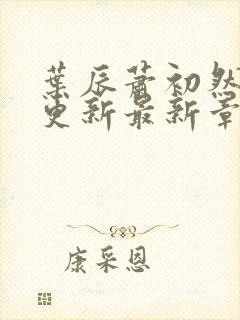 葉辰蕭初然
更新最新章
康采恩